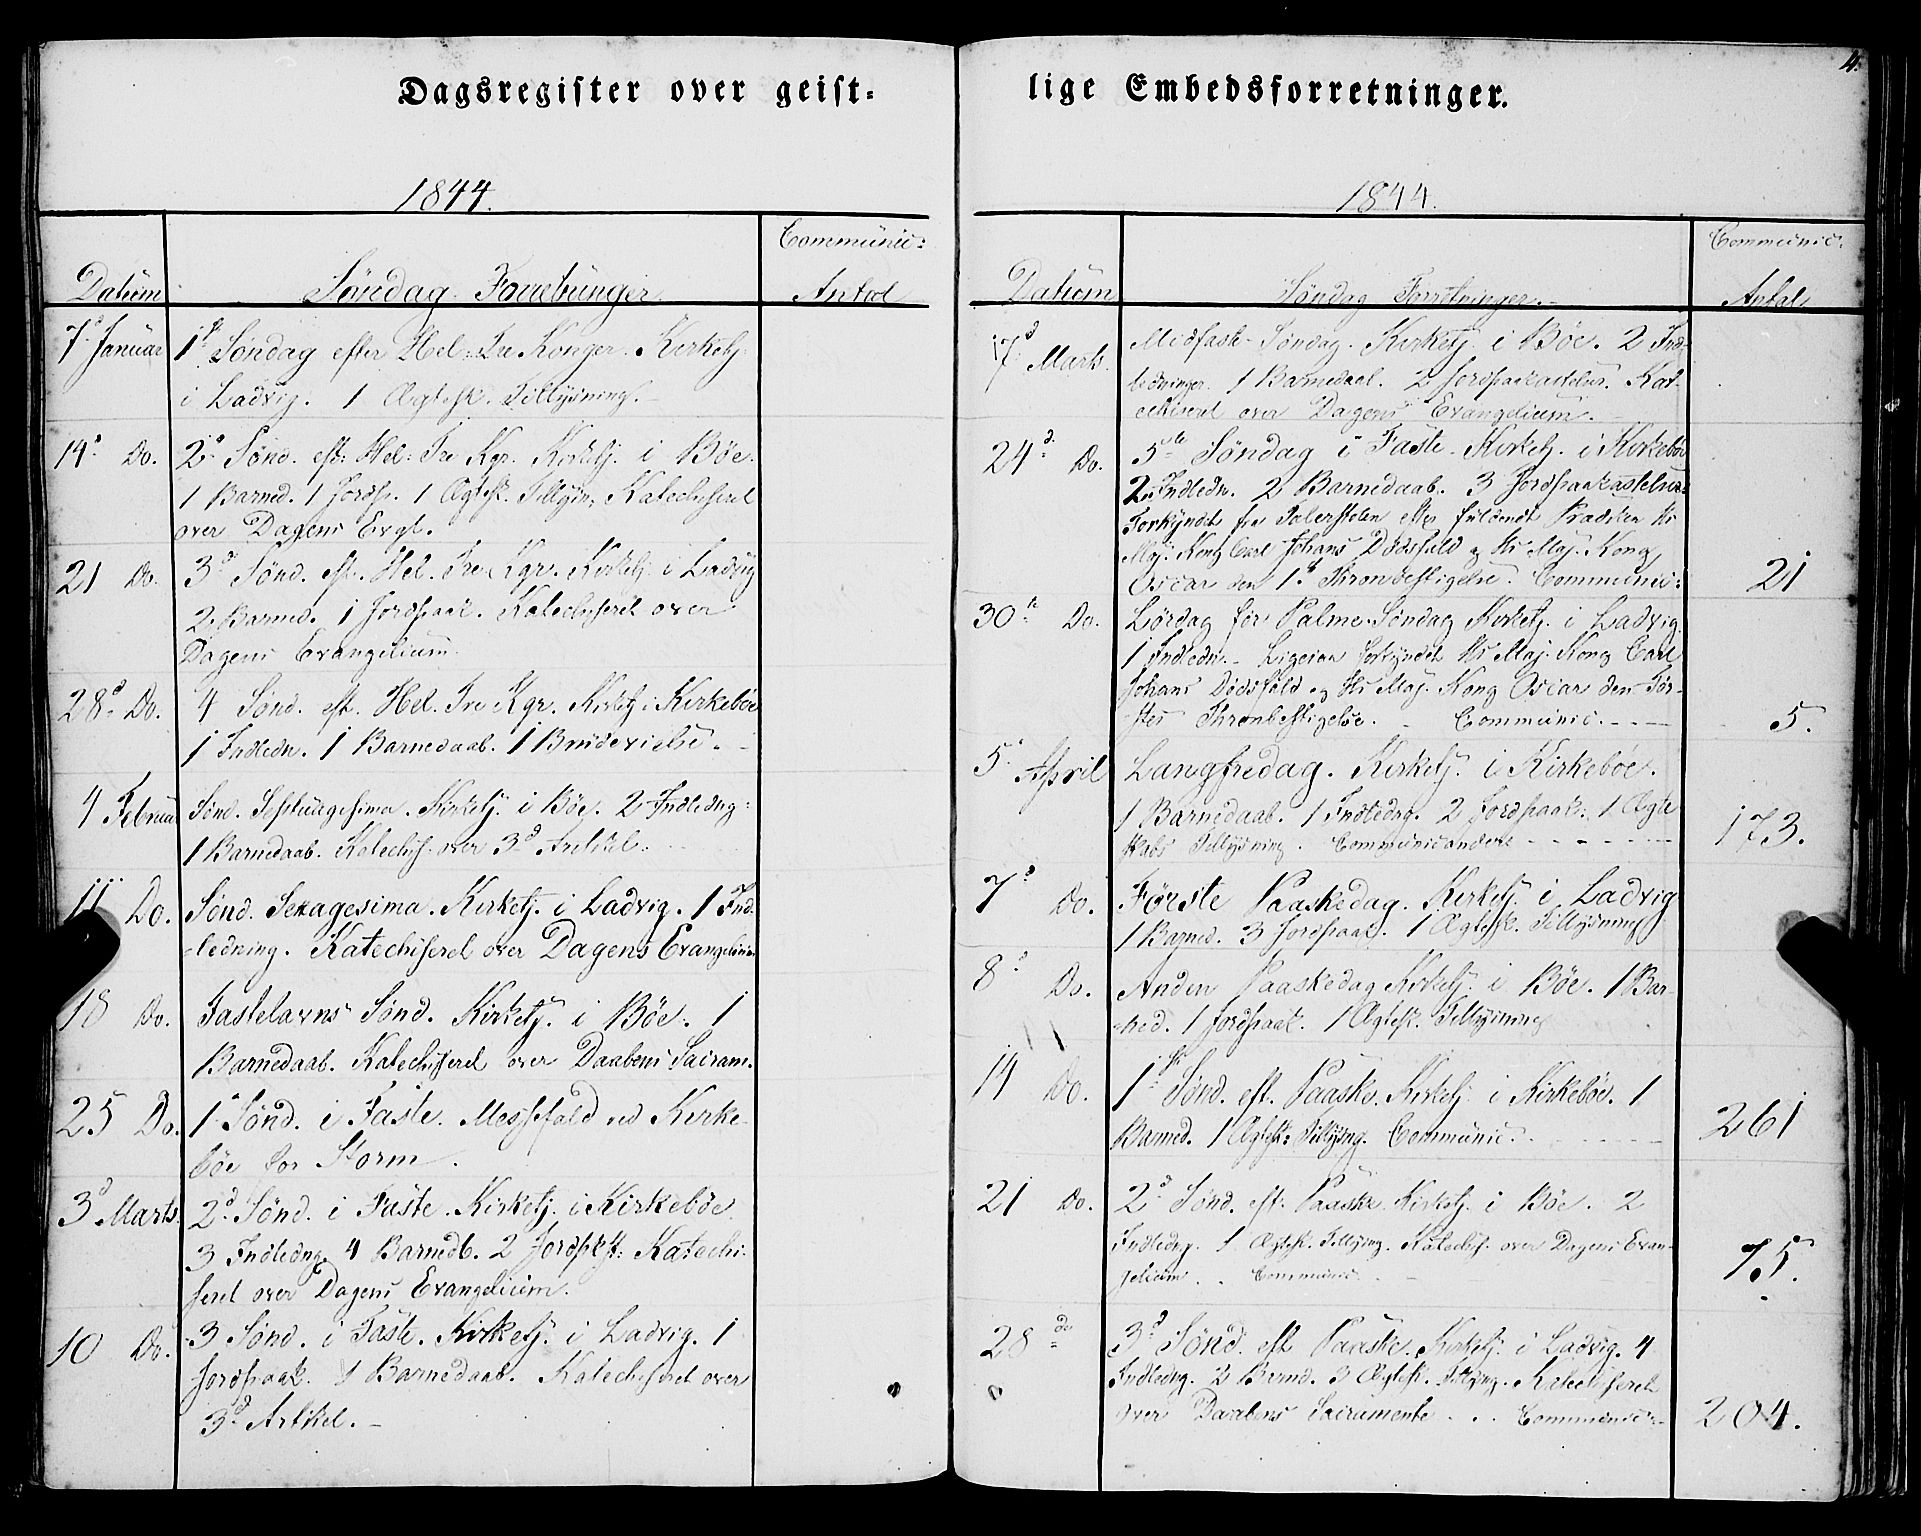 Dagsregister over geist-
1844.
Datum
Søndag Forrebunger
Communic:
Antal
7d Januar
1st Søndag efter Hel: Tre Konger. Kirketj.
i Ladvig. 1 Ægtesk. Tillysning.
14d Do.
2d Sønd. eft: Hel: Tre Kgr. Kirketj. i Böe.
1 Barned. 1 Jordsp. 1 Ægtesk. Tillysn. Katechiseret
over Dagens Evgl.
21 Do.
3d Sønd. eft. Hel. Tre Kgr. Kirketj. i Ladvig
2 Barned. 1 Jordpaak. Katechiseret over
Dagens Evangelium.
28d Do.
4 Sønd. eft. Hel. Tre Kgr. Kirketj. i Kirkebøe
1 Indledn. 1 Barnedaab. 1 Brudevielse.
4 Februar
Sønd. Septuagesima. Kirketj. i Böe. 2 Indledng:
1 Barnedaab. Katechis. over 3d Artikel.
11 Do.
Sønd. Sexagesima. Kirketj. i Ladvig. 1 Ind-
-ledning. Katechiseret over Dagens Evangelium
18 Do.
Fastelavns Sønd. Kirketj. i Böe. 1
Barnedaab. Katechiseret over Daabens Sacram.
25 Do.
1 Sønd. i Faste. Messefald ved Kirke-
böe for Storm.
3d Marts
2d Sønd. i Faste. Kirketj. i Kirkebøe.
3 Indledng. 4 Barnedb. 2 Jordpkst: Katechi-
seret over Dagens Evangelium.
10 Do.
3 Sønd. i Faste. Kirketj. i Ladvig. 1
Jordpaak. 1 Barnedaab. Katechiseret over
3d Artikel.
4.
lige Embedsforretninger.
1844.
Datum
Søndag Forretninger.
Communic.
Antal
17d Marts.
Midfaste-Søndag. Kirketj. i Böe. 2 Ind-
ledninger. 1 Barnedaab. 2 Jordpaakastelser. Kat-
echiseret over Dagens Evangelium.
24d. Do.
5te Søndag i Faste. Kirketj. i Kirkebøe
2 Indledn. 2 Barnedaab. 3 Jordpaakastelser
Forkyndt fra Talerstolen efter fuldendt Prædiken Hs
Maj. Kong Carl Johans Dødsfald og Hs Maj. Kong
Oscar den 1st Thronbestigelse. Communic: 21
30te Do.
Lørdag før Palme Søndag Kirketj. i Ladvig.
1 Indledn. Ligesaa forkyndt Hs Maj. Kong Carl
Johans Dødsfald og Hs Maj. Kong Oscar den Før-
stes Thronbestigelse. Communic. 5.
5. April
Langfredag. Kirketj. i Kirkebøe.
1 Barnedaab. 1 Indledng. 2 Jordpaak: 1 Ægte
skabs Tillysning. Communicanter 173.
7d Do.
Første Paaskedag. Kirketj. i Ladvig
1 Barned. 3 Jordpaak. 1 Ægtesk. Tillysning
8d Do.
Anden Paaskedag Kirketj. i Böe. 1 Bar-
ned. 1 Jordpaak. 1 Ægtesk. Tillysning
14 Do.
1st Sønd. eft. Paaske. Kirketj. i Kirkebøe. 1
Barned. 1 Ægtesk: Tillysng. Communic. 261
21 Do.
2d Sønd. eft: Paaske Kirketj. i Böe. 2
Indledng. 1 Ægtesk. Tillysng. Katechis. over Dagens Evan-
gelium. Communic. 75.
28de
3d Sønd. eft Paaske. Kirketj. i Ladvig. 4
Indledng. 2 Barned. 3 Ægtesk. Tillysng. Katechiseret
over Daabens Sacramente. Communic: 204.